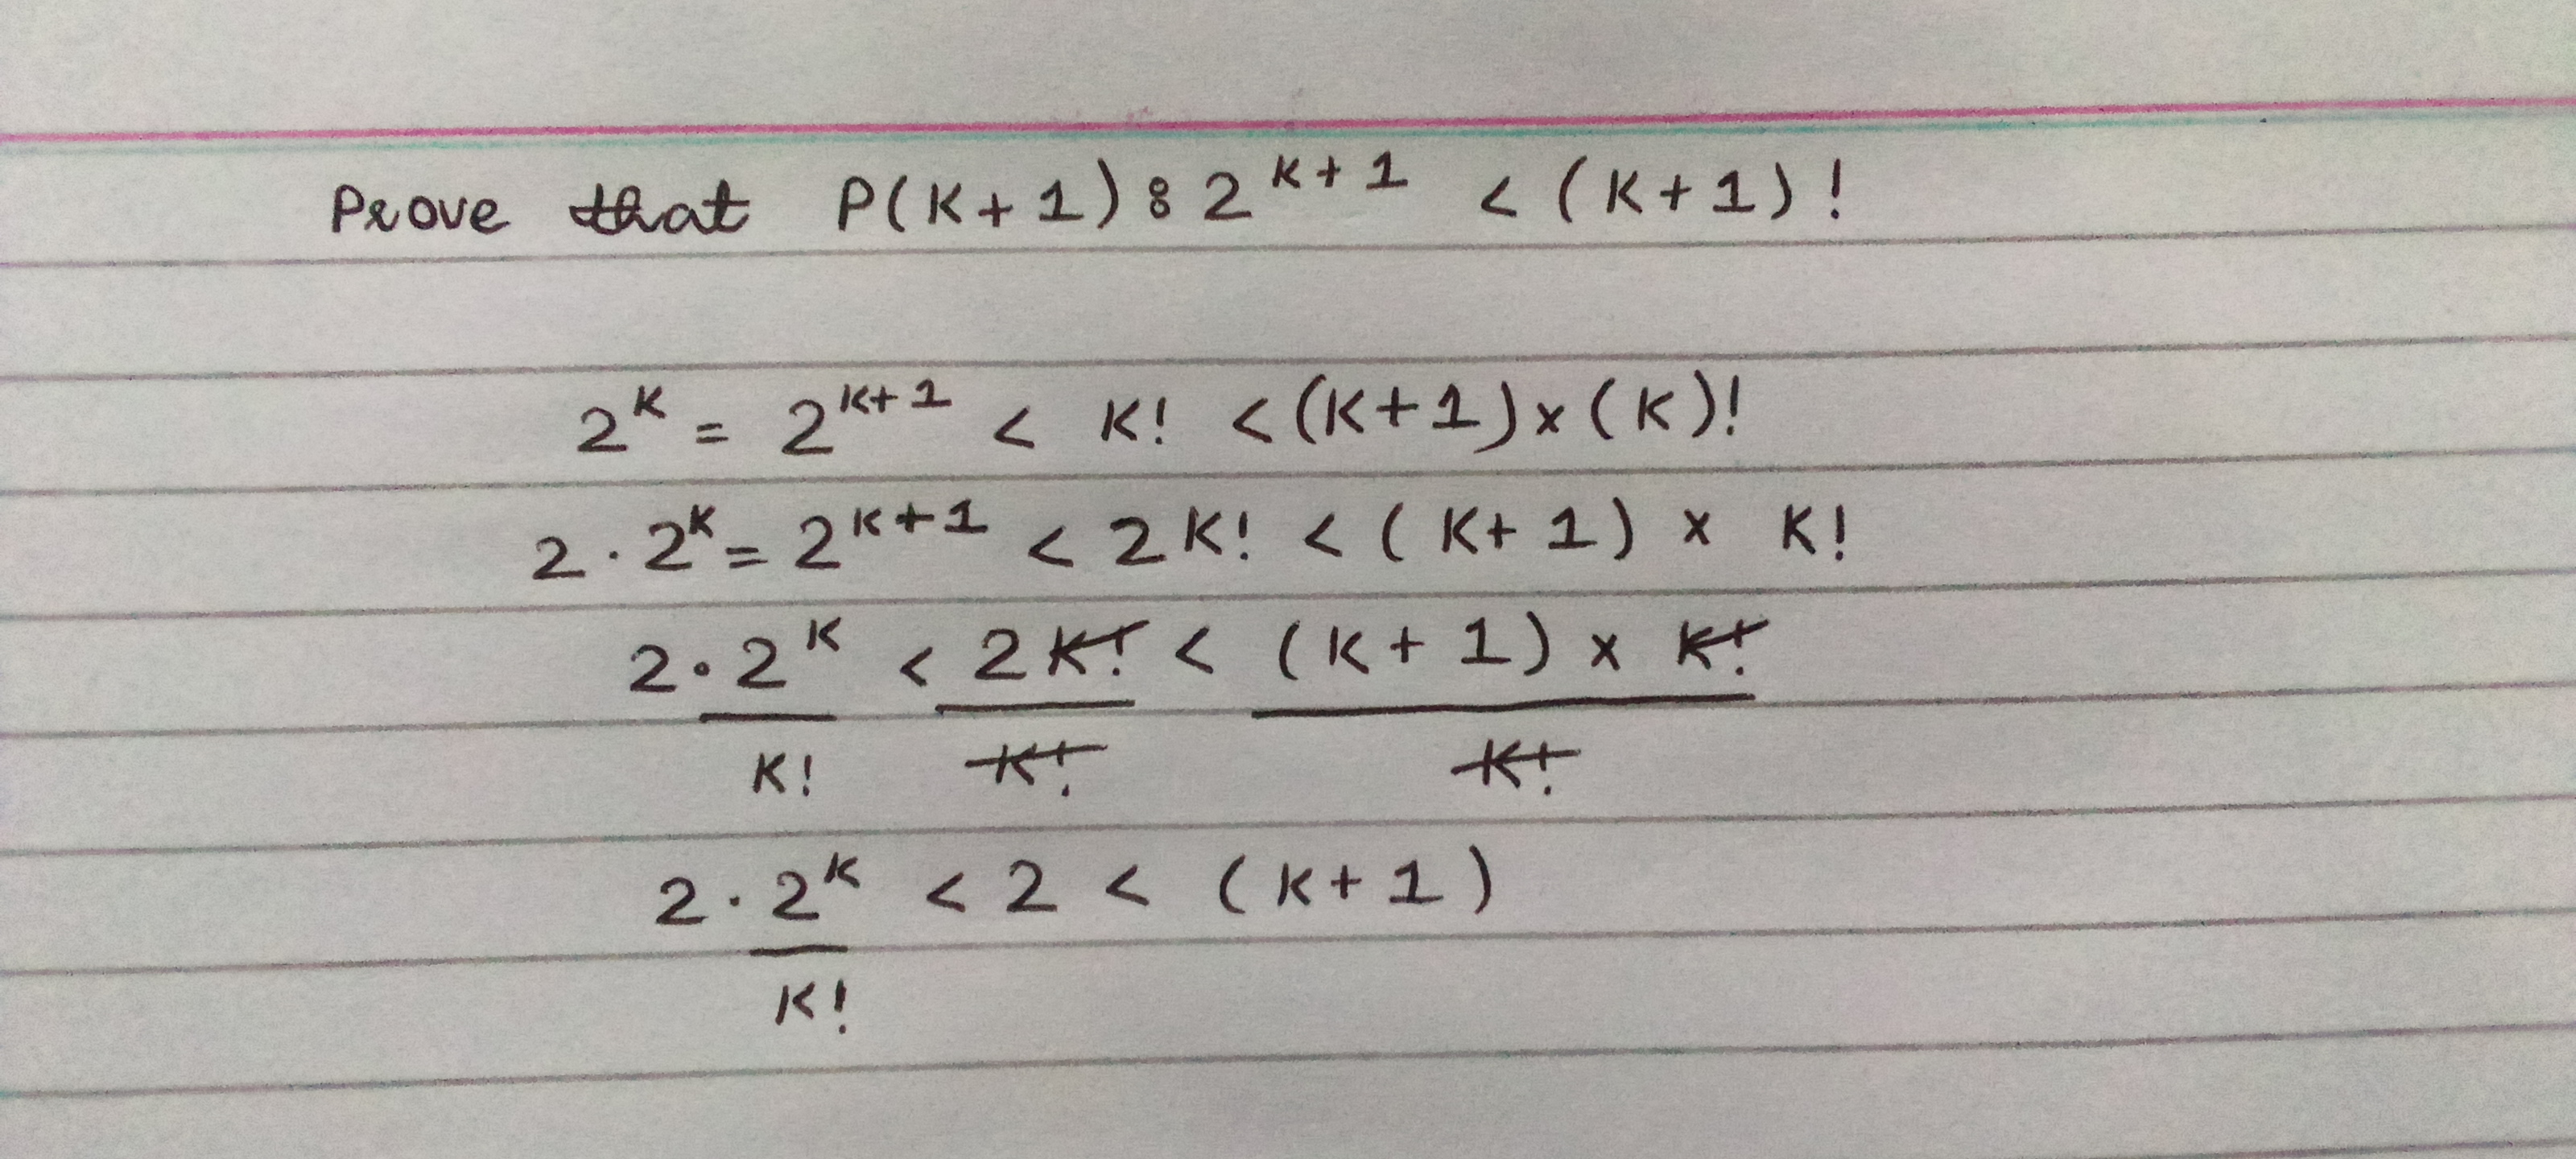 Prove that P(K+1): 2^{K+1} < (K+1)!
2^K = 2^{K+1} < K! < (K+1) x (K)!
2 · 2^K = 2^{K+1} < 2K! < (K+1) x K!
2 · 2^K < 2K! < (K+1) x K!
K! K! K!
2 · 2^K < 2 < (K+1)
K!